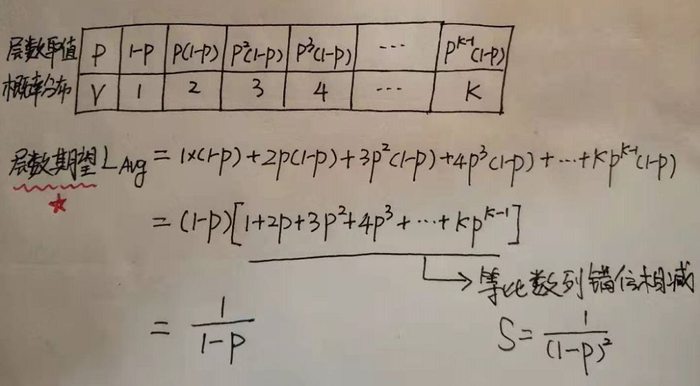 层数取值 P 1-P P(1-P) P²(1-P) P³(1-P) ... P^{K-1}(1-P)
概率分布 V 1 2 3 4 ... K
层数期望 L_{Avg} = 1×(1-P)+2P(1-P)+3P²(1-P)+4P³(1-P)+...+KP^{K-1}(1-P)
= (1-P)[1+2P+3P²+4P³+...+KP^{K-1}]
→ 等比数列错位相减
= \frac{1}{1-P} S = \frac{1}{(1-P)²}